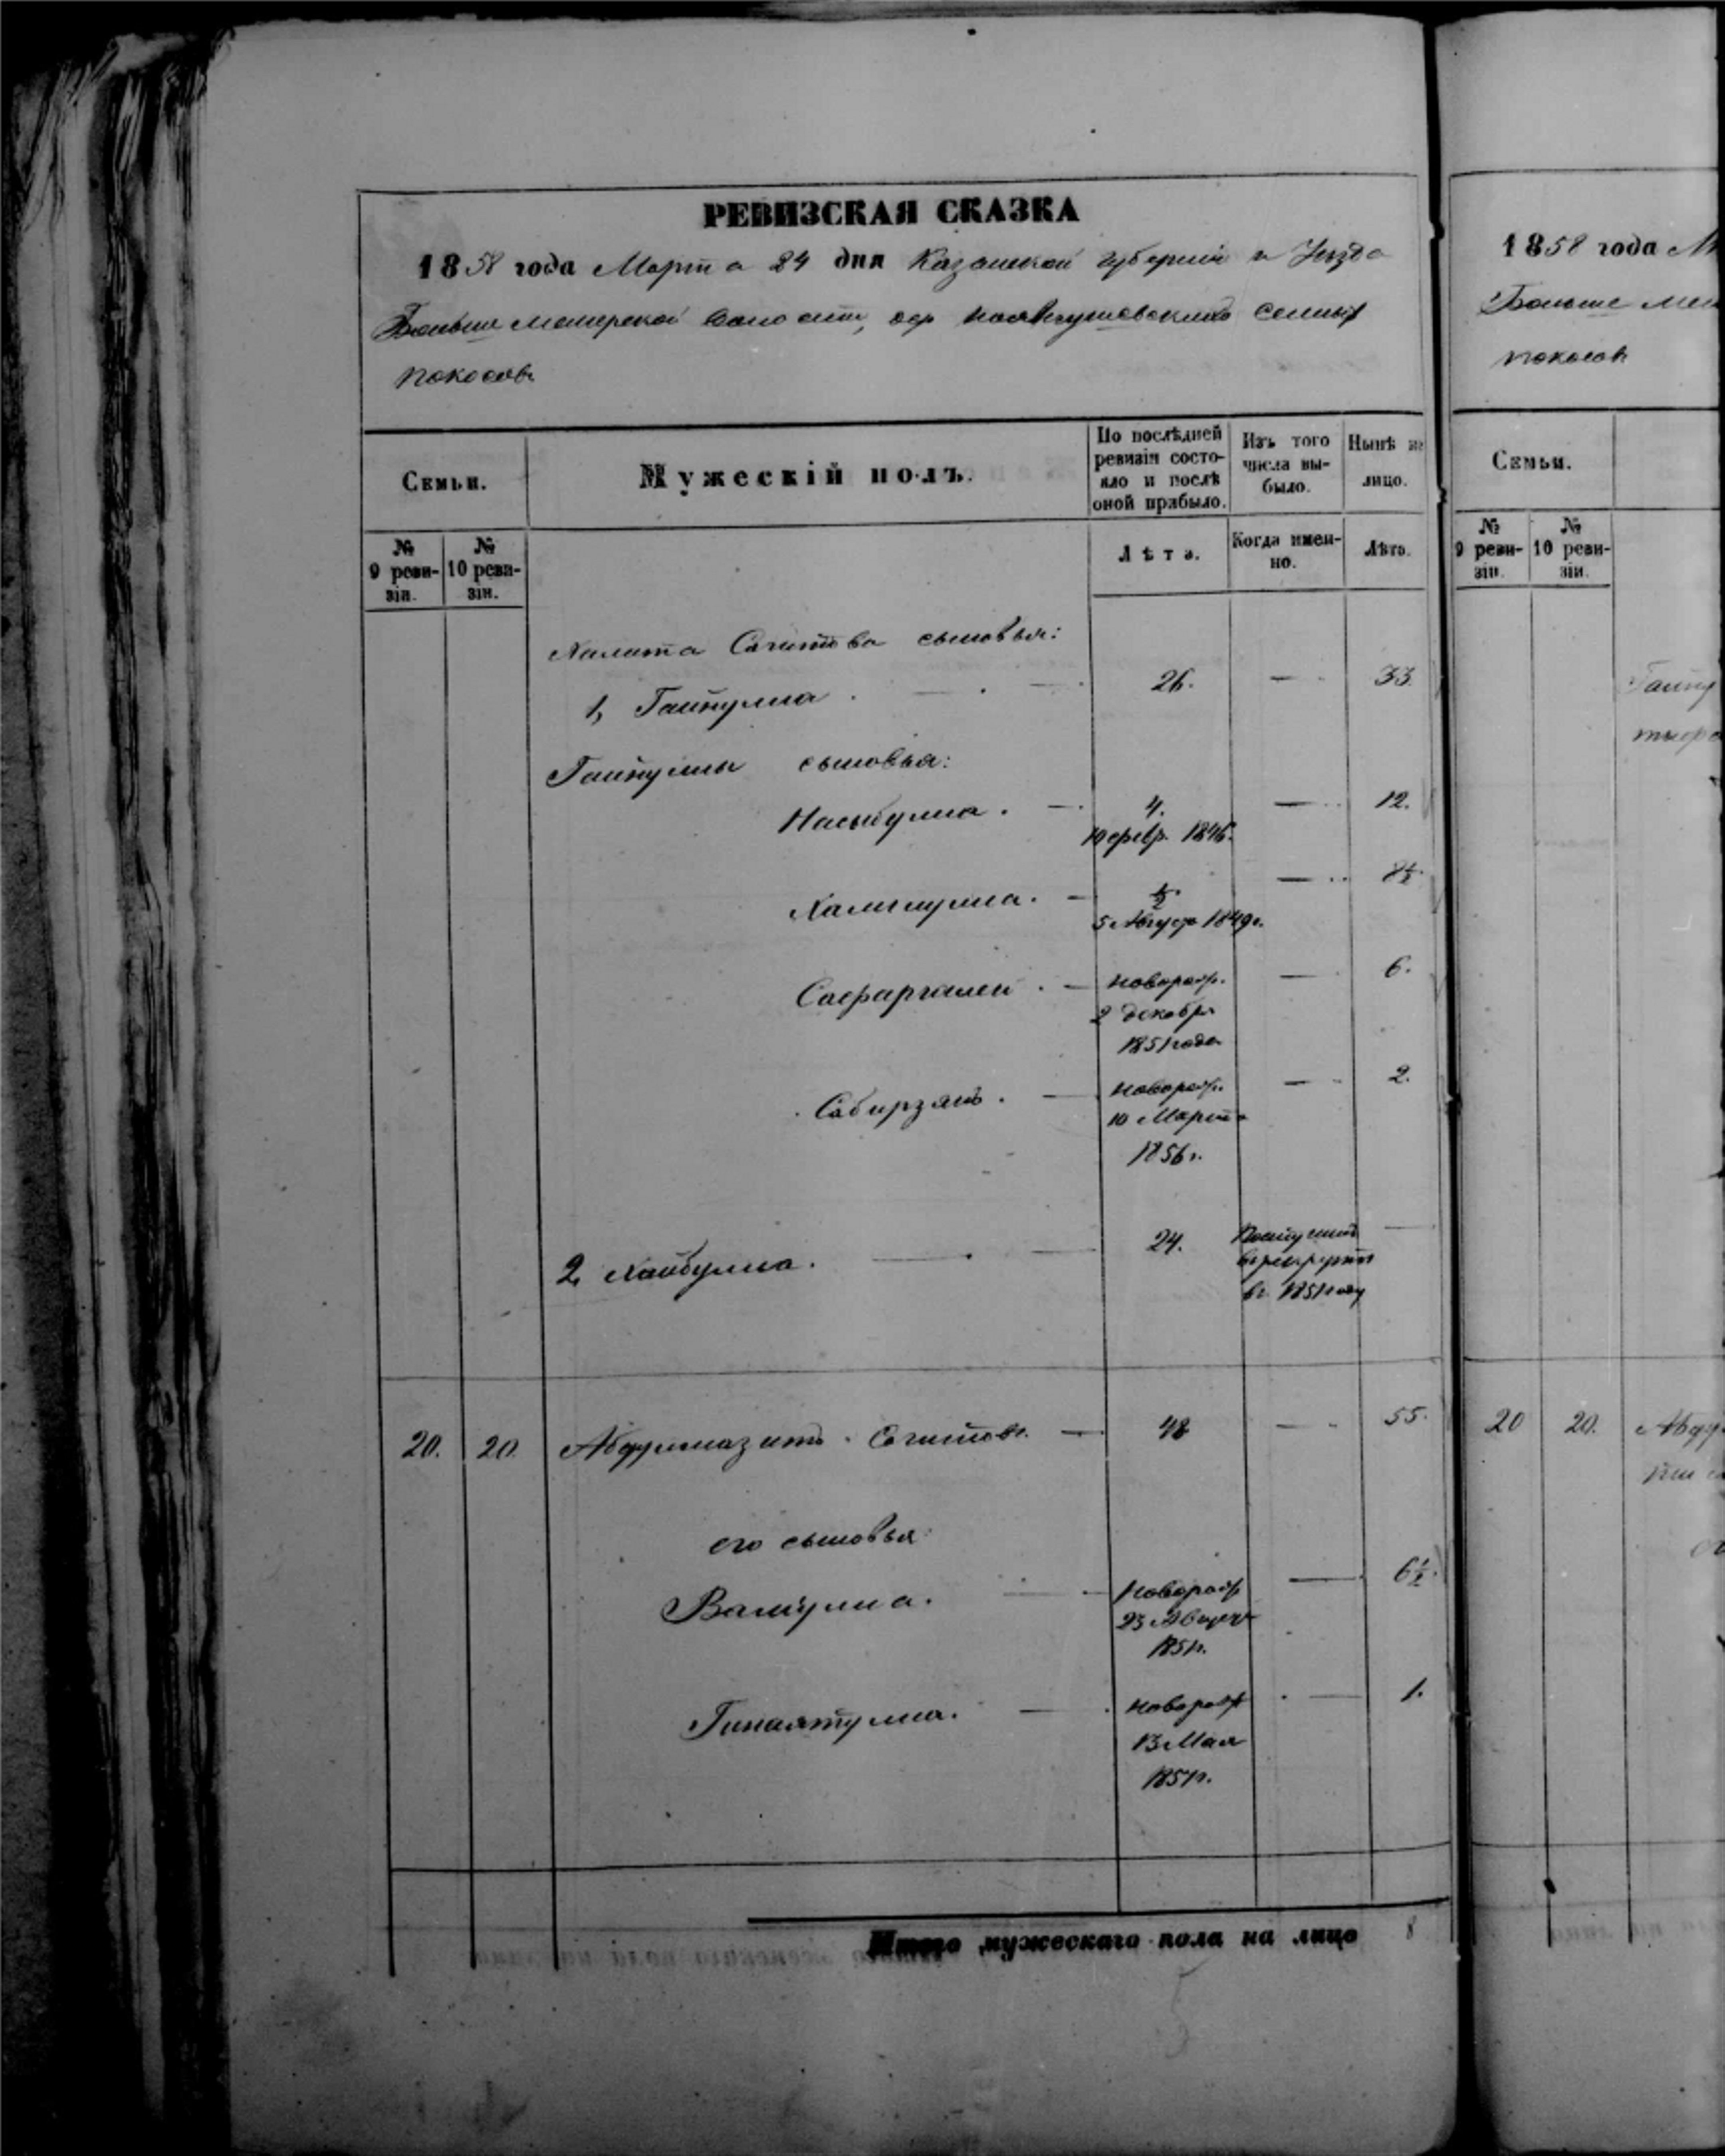 РЕВИЗСКАЯ СКАЗКА
1858 года Марта 24 дня Казанской губернiи и Уѣзда
Больше менгерской волости, дер. сенных
покосовъ
Семьи.
Мужескiй полъ.
По послѣдней ревизiи состояло и послѣ оной прибыло.
Изъ того числа выбыло.
Нынѣ на лицо.
№ 9 ревизiи.
№ 10 ревизiи.
Лѣта.
Когда именно.
Лѣта.
Халита Сагитова сыновья:
1, Гайнулла . — . — . 26. — . 33.
Гайнуллы сыновья:
Насыбулла . — . 4. — . 12.
10 февр. 1846.
Халиулла . — ½. — . 8½.
5 Августа 1849г.
Сафаргалей . — новорож. — 6.
2 декабря
1851 года
Сабирзянъ . — новорож. — . 2.
10 Марта
1856г.
2, Хайбулла . — . — 24. Поступилъ —
въ рекруты
въ 1851 году
20. 20. Сагитовъ — 48 — . 55.
его сыновья:
Валиулла . — новорож — 6½.
23 Август
1851г.
Гинаятулла . — . новорож . — 1.
13 Мая
1857г.
Итого мужескаго пола на лицо 8
1858 года М
Больше мен
покосовъ
Семьи.
№ 9 ревизiи.
№ 10 ревизiи.
Гайну
20 20. Абду